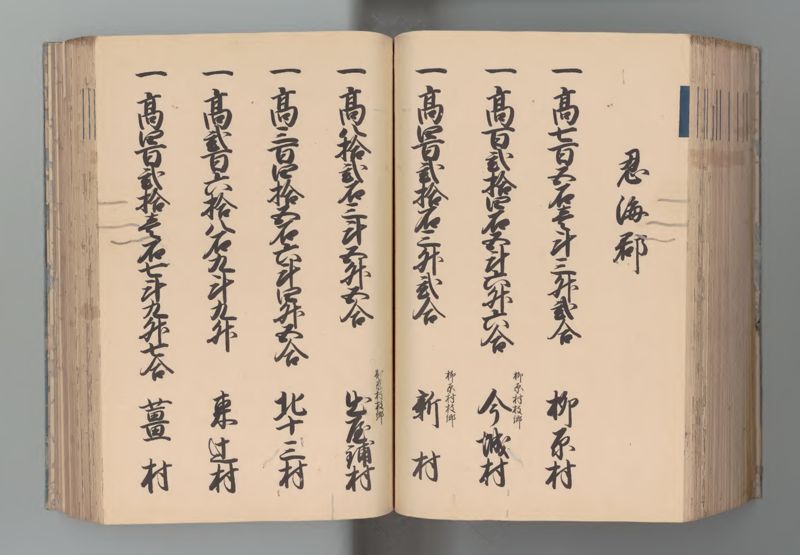 忍海郡
一高七百五石壱斗三升弐合 柳原村
柳原村枝郷
一高百弐拾四石五斗六升六合 今城村
柳原村枝郷
一高四百弐拾石三升弐合 新村
柳原村枝郷
一高八拾弐石三斗五升五合 出屋鋪村
一高三百四拾五石六斗四升五合 北十三村
一高弐百六拾八石九斗九升 東辻村
一高四百弐拾壱石七斗九升七合 薑村